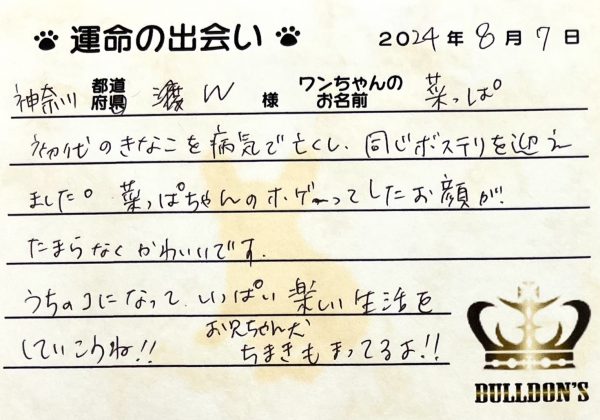 運命の出会い
2024年8月7日
神奈川 都道府県 W 様 ワンちゃんのお名前 菜っぱ
初代のきなこを病気で亡くし、同じボステリを迎え
ました。菜っぱちゃんのホゲーってしたお顔が
たまらなくかわいいです。
うちのコになって、いっぱい楽しい生活を
していこうね!!
お兄ちゃん犬
ちまきもまってるよ!!
BULLDON'S